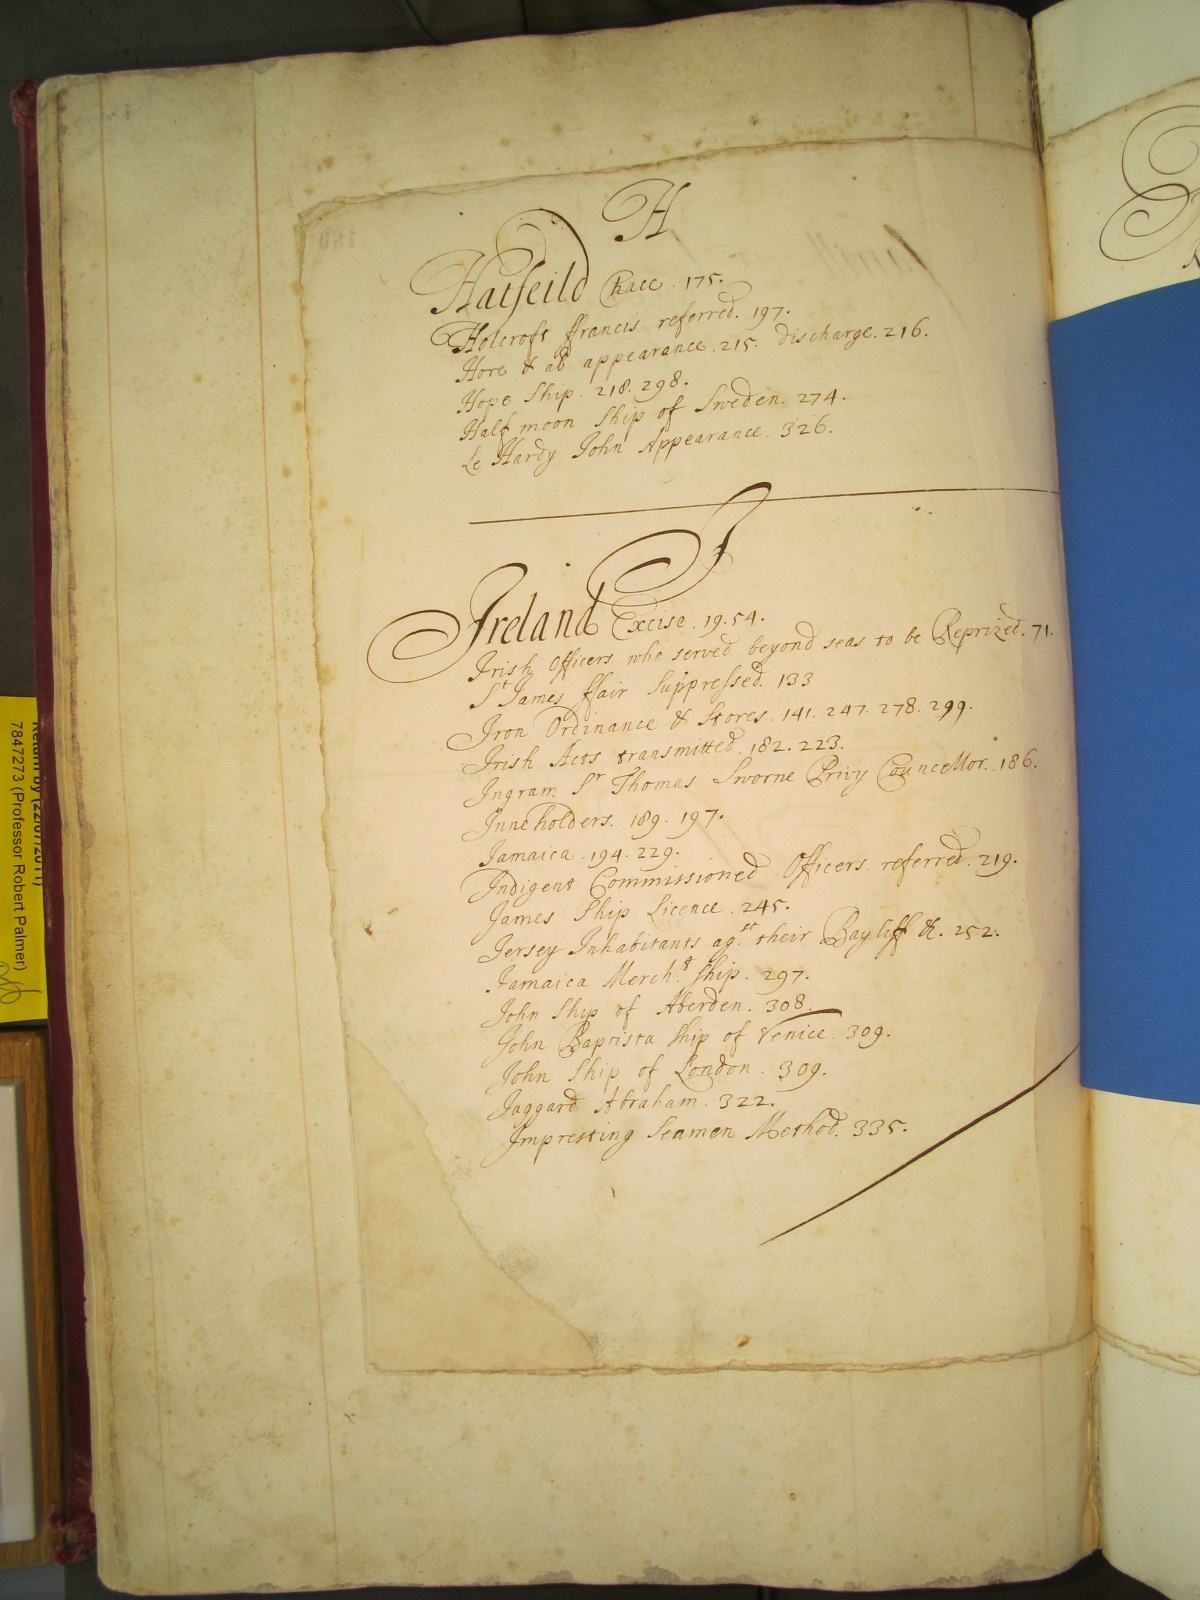 H
Hatfeild Chace . 175.
Holcroft ffrancis referred. 197.
Hore & al appearance . 215. discharge . 216.
Hope Ship . 218. 298.
Half moon Ship of Sweden . 274.
Le Hardy John Appearance . 326.
I
Ireland Excise . 19. 54.
Irish Officers who served beyond seas to be Reprized. 71.
St James ffair Suppressed. 133
Iron Ordinance & Stores . 141. 247. 278. 299.
Irish Acts transmitted. 182. 223.
Ingram Sr Thomas Sworne Privy Councellor. 186.
Inneholders. 189. 197.
Jamaica . 194. 229.
Indigent Commissioned Officers referred . 219.
James Ship Licence . 245.
Jersey Inhabitants agst their Bayliff &. 252.
Jamaica Mercht Ship . 297.
John Ship of Aberden. 308.
John Baptista Ship of Venice . 309.
John Ship of London . 309.
Jaggard Abraham . 322.
Impresting Seamen Method. 335.
Return by (22/07/2011)
7847273 (Professor Robert Palmer)